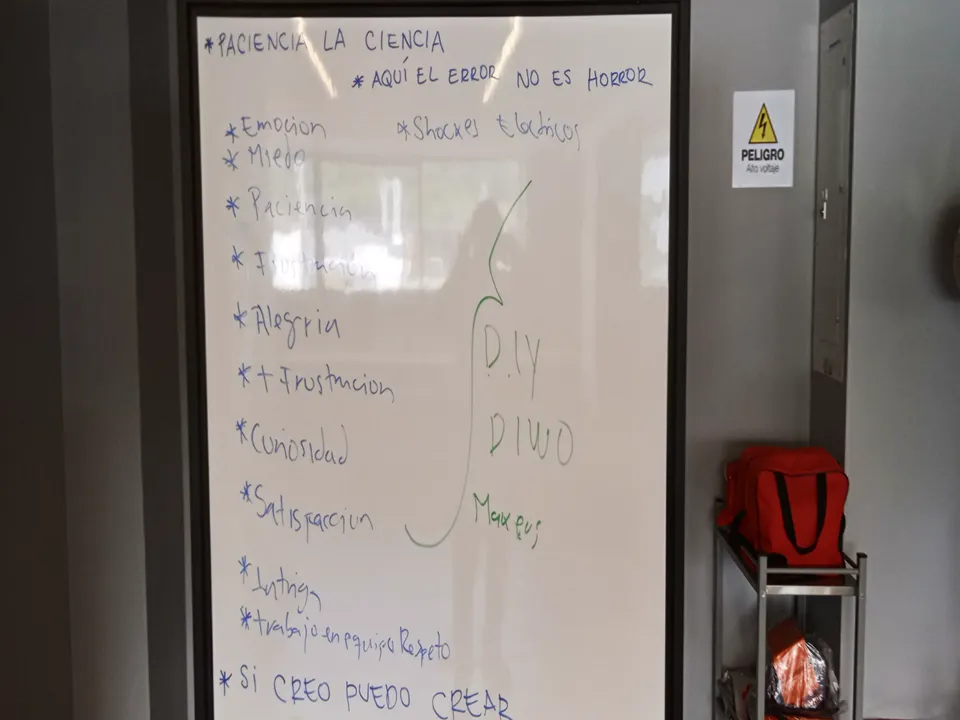 *PACIENCIA LA CIENCIA
*AQUÍ EL ERROR NO ES HORROR
*Emocion
*Shockes Electricos
*Miedo
*Paciencia
*Frustración
*Alegria
*+Frustracion
*Curiosidad
*Satisfaccion
*Intriga
*trabajo en equipo Respeto
*SI CREO PUEDO CREAR
D.IY
DIWO
Makers
PELIGRO
Alto voltaje